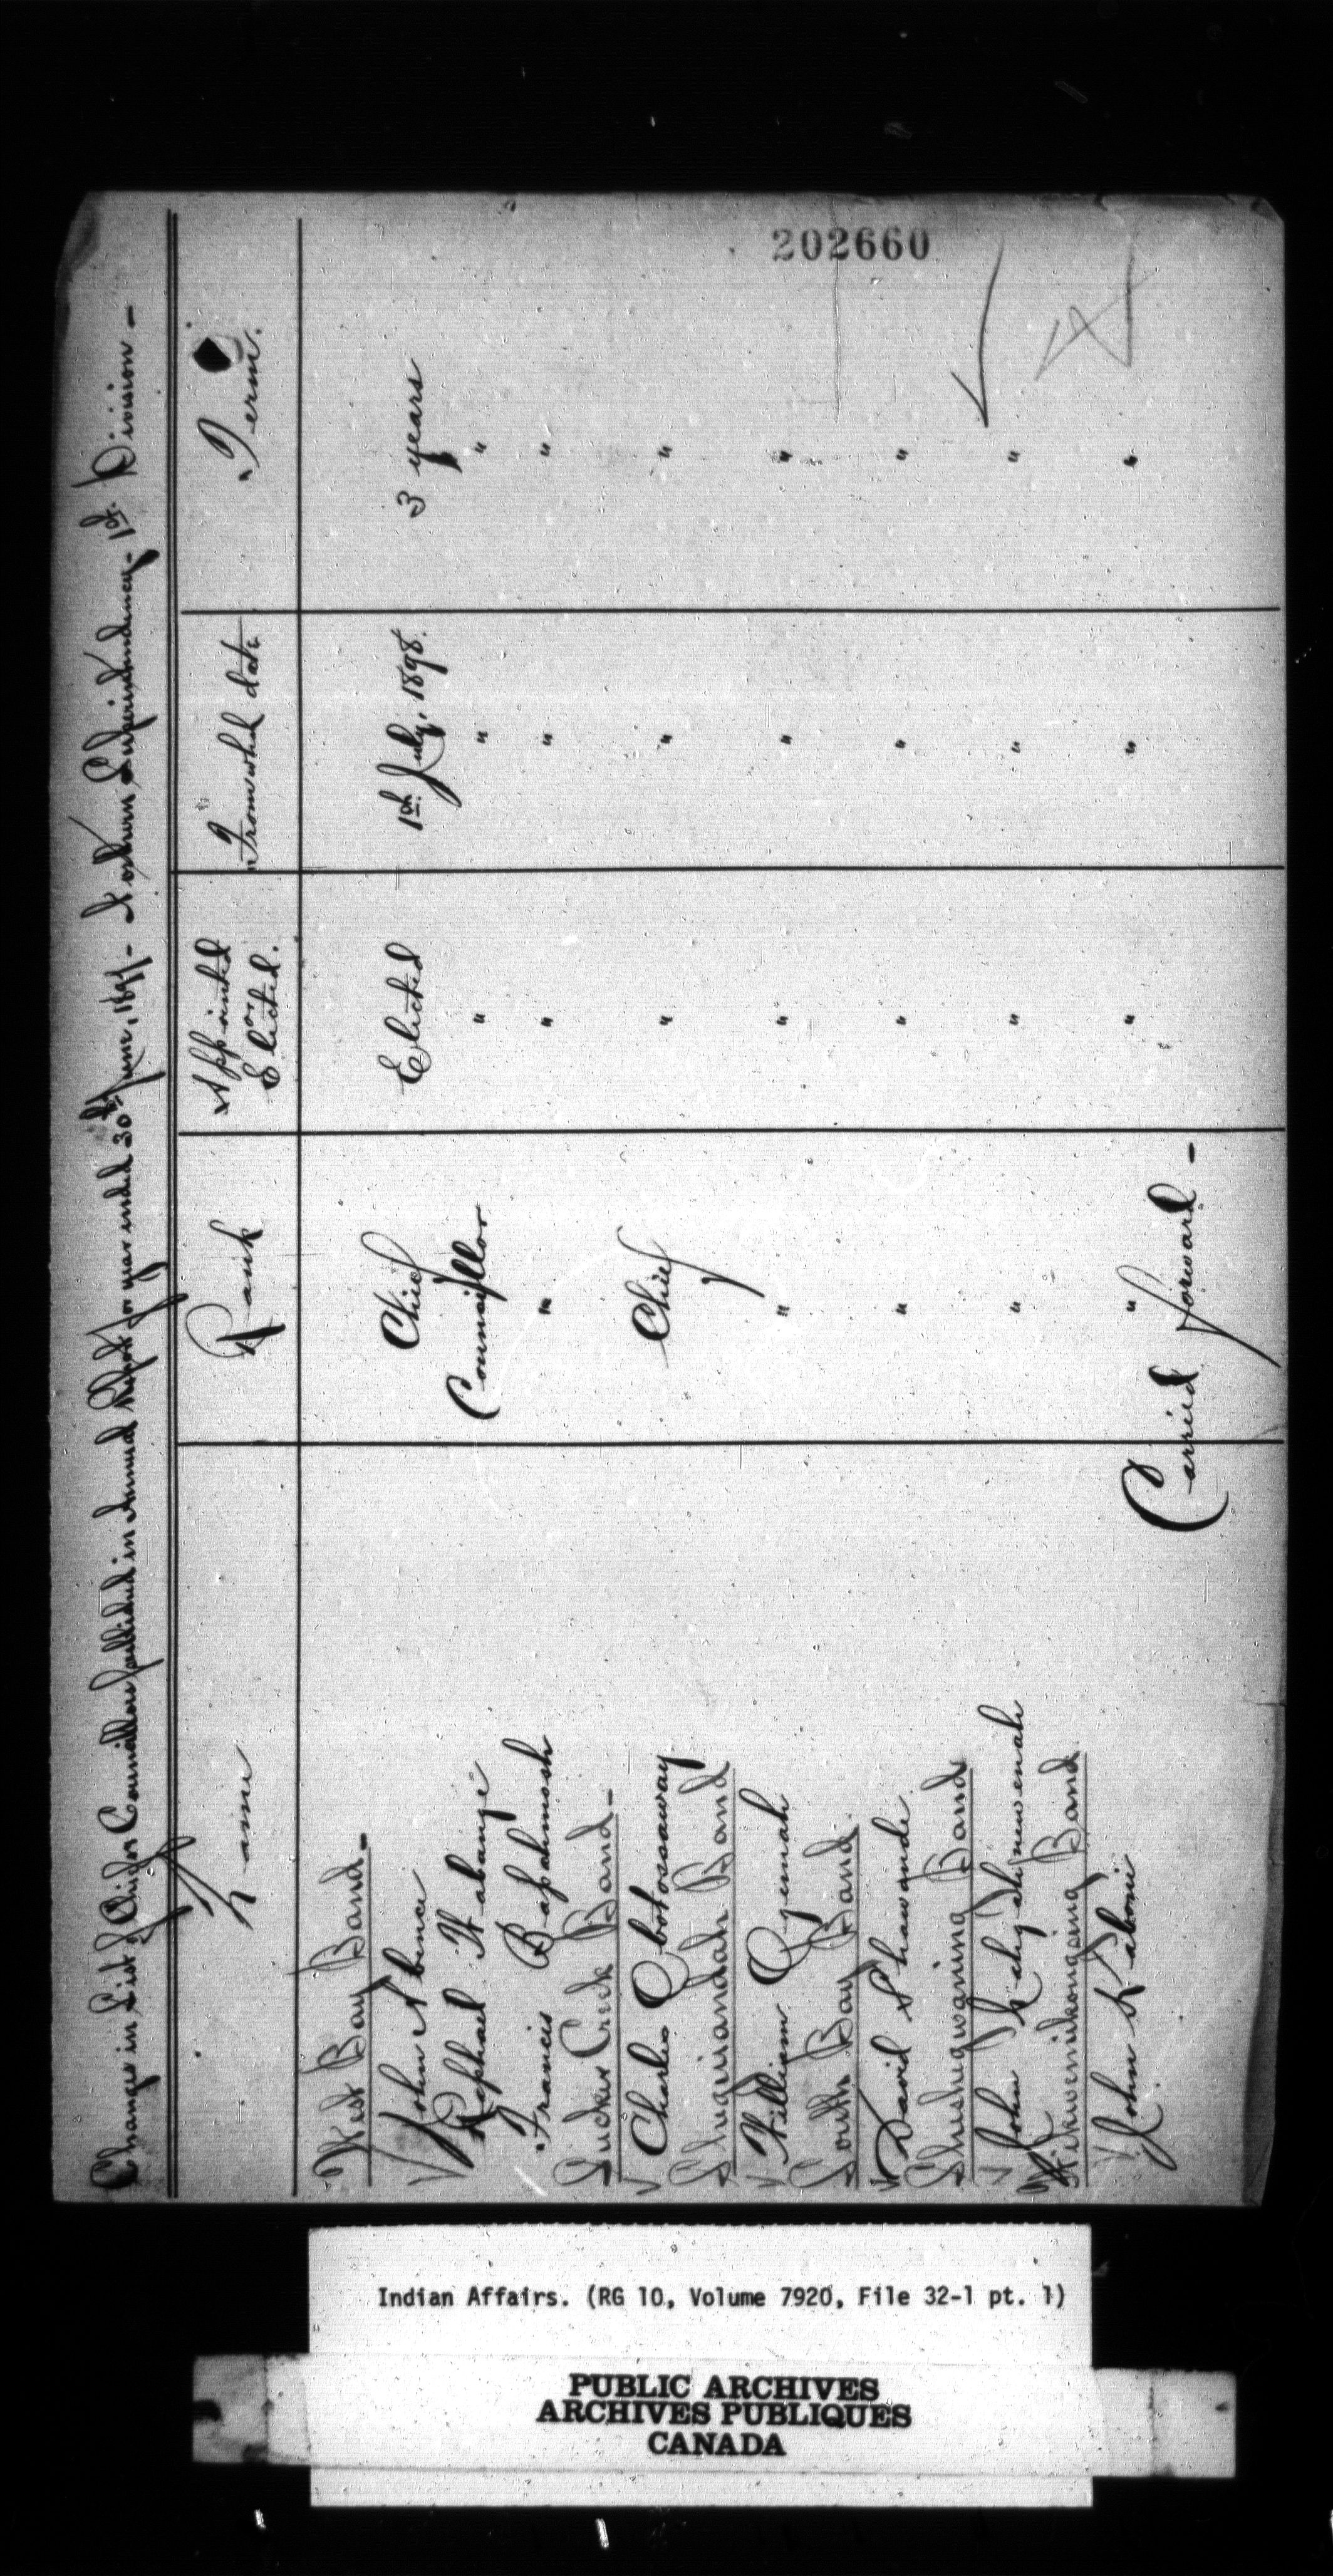 202660
Changes in List of Chiefs & Councillors published in Annual Report for year ended 30th June, 1897 - Northern Superintendency - 1st Division -
Name Rank Appointed or Elected. From what date Term.
West Bay Band -
John Abence Chief Elected 1st July, 1898. 3 years
Raphael Wabange Councillor " " "
Francis Bapahmosh " " " "
Sucker Creek Band -
Charles Obotossaway Chief " " "
Sheguiandah Band
William Ogemah " " " "
South Bay Band
David Shawande " " " "
Sheshegwaning Band
John Kahgahnewenah " " " "
Wikwemikongsing Band
John Kaboni " " " "
Carried forward -
Indian Affairs. (RG 10, Volume 7920, File 32-1 pt. 1)
PUBLIC ARCHIVES
ARCHIVES PUBLIQUES
CANADA